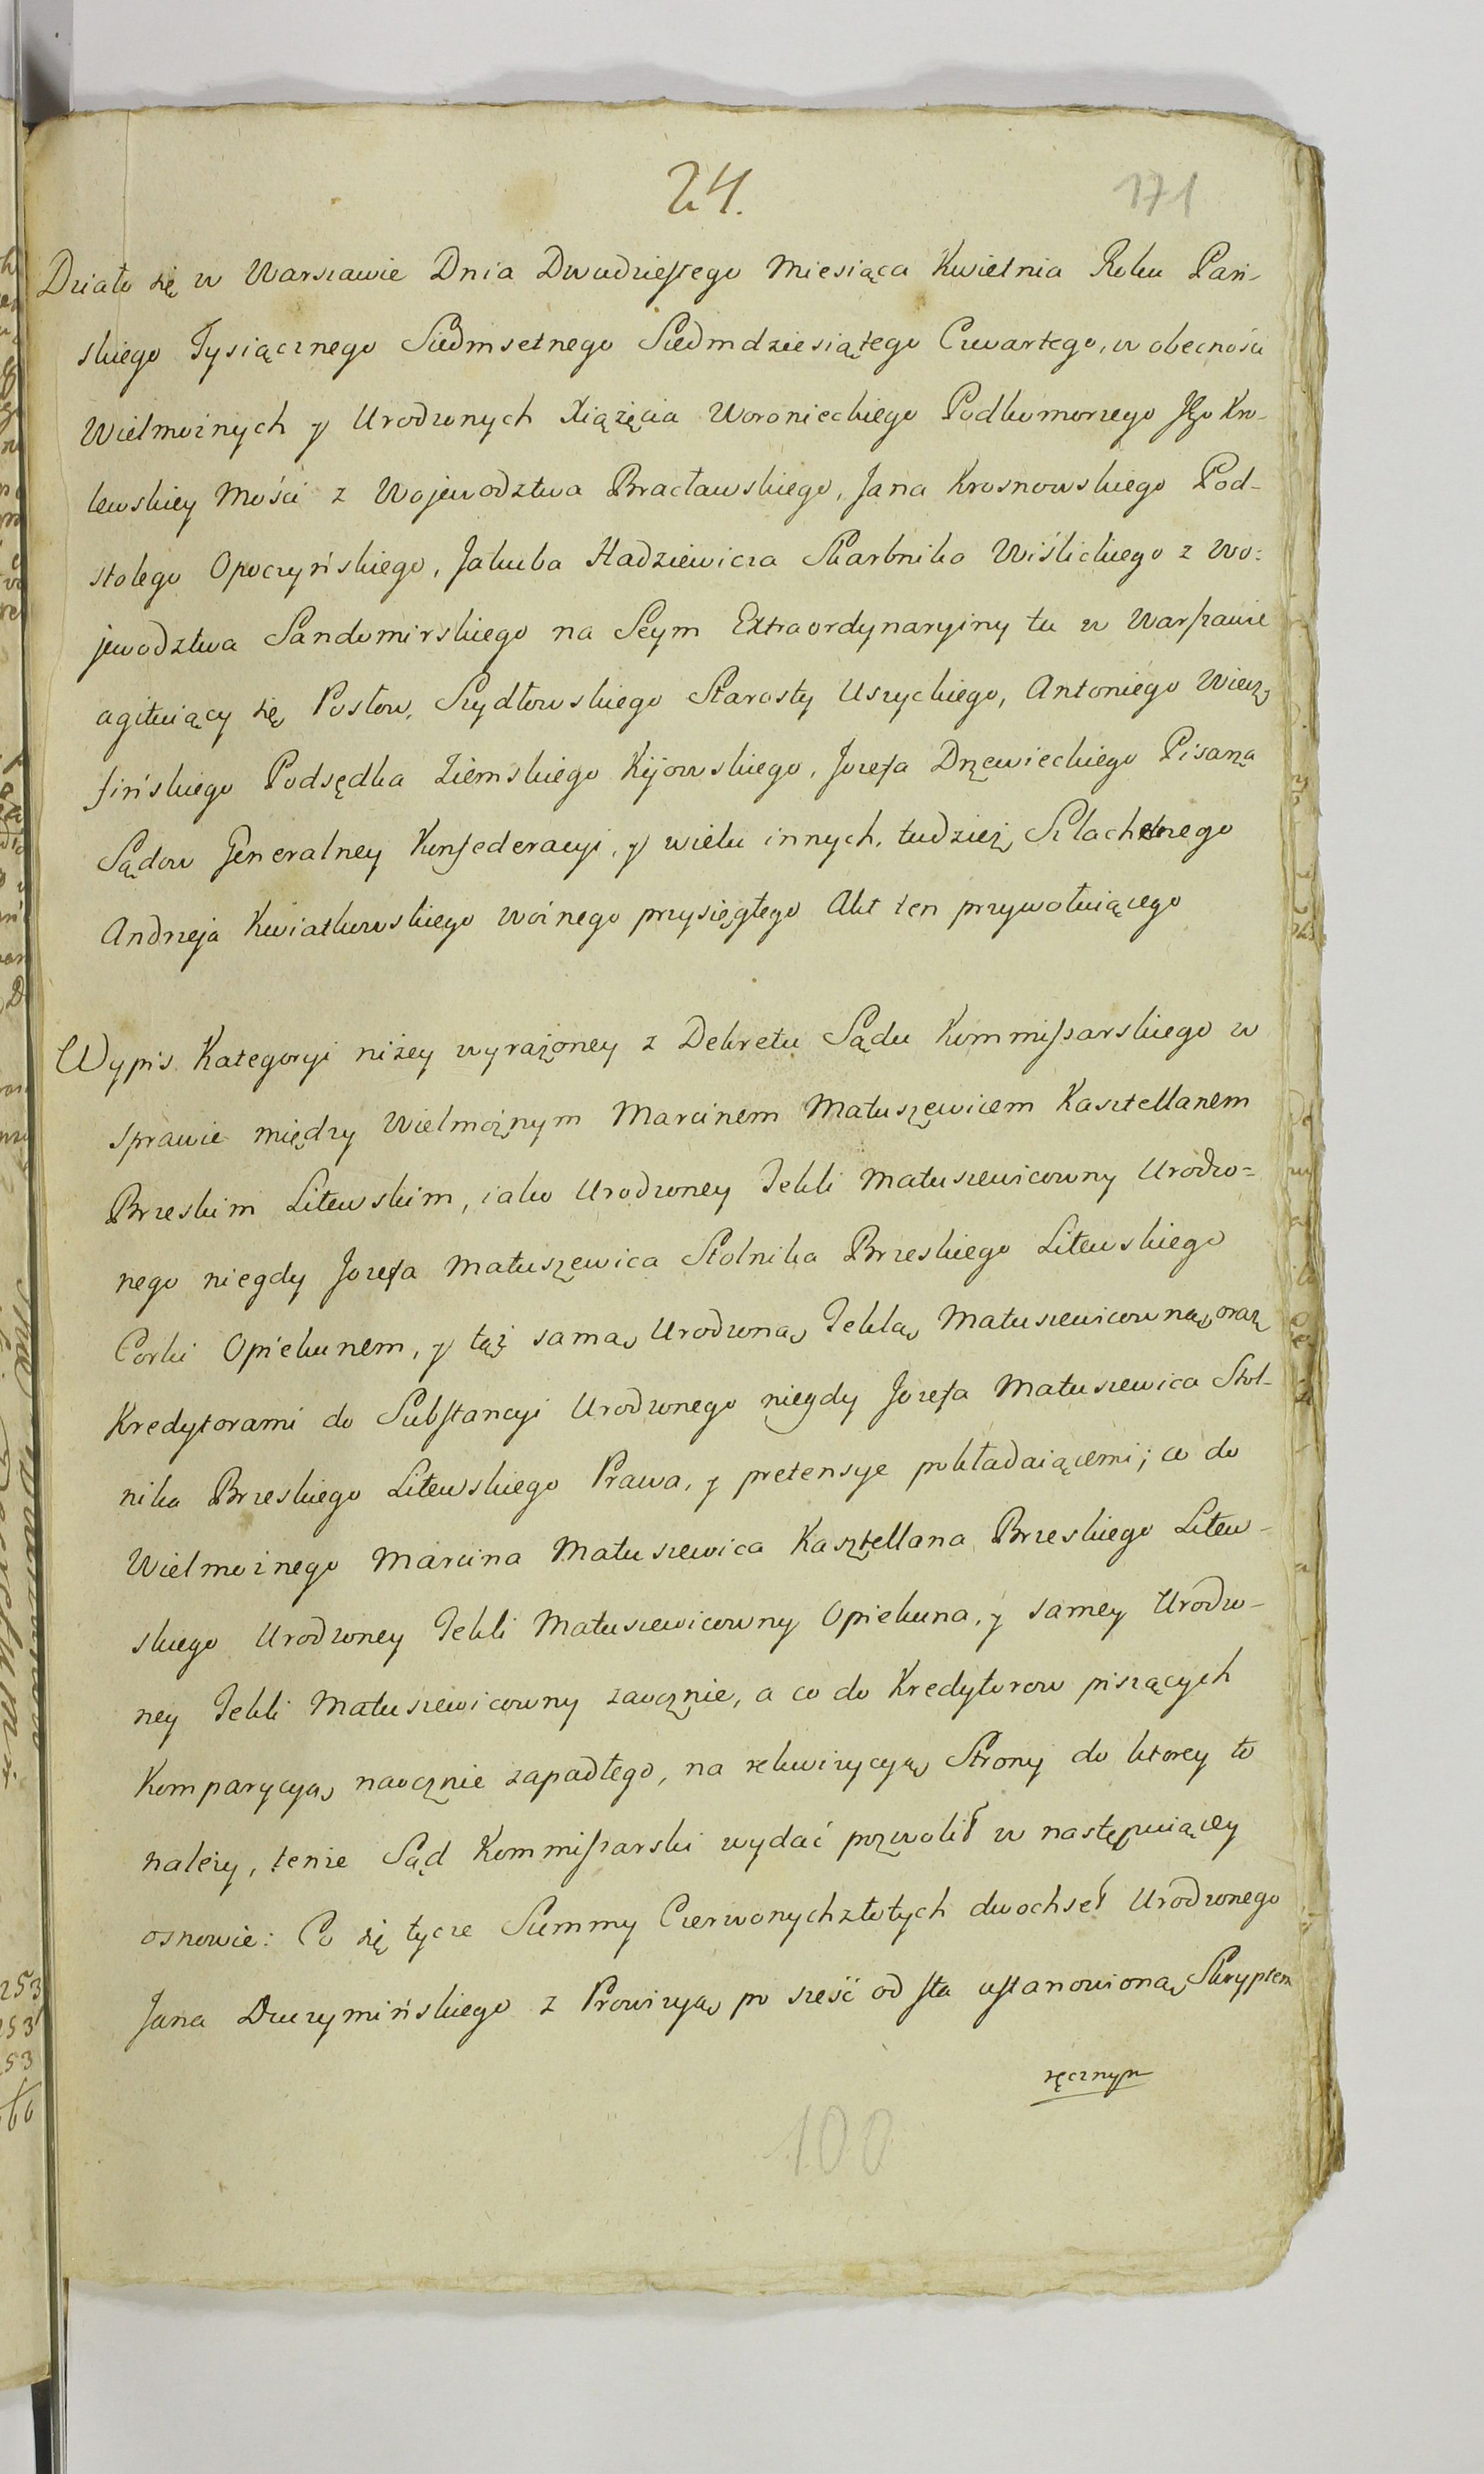 24.
171
Działo się w Warszawie Dnia Dwudziestego Miesiąca Kwietnia Roku Pań-
skiego Tysiącznego Siedmsetnego Siedmdziesiątego Czwartego, w obecności
Wielmożnych y Urodzonych Xiążęcia Woronieckiego Podkomorzego JKo Kro-
lewskiey Mości z Wojewodztwa Bracławskiego, Jana Krosnowskiego Pod-
stolego Opoczyńskiego, Jakuba Hadziewicza Skarbnika Wiślickiego z Wo-
jewodztwa Sandomirskiego na Seym Extraordynaryiny tu w Warszawie
agituiący się Posłow, Szydłowskiego Starosty Uszyckiego, Antoniego
Podsędka Ziemskiego Kijowskiego, Jozefa Drzewieckiego Pisarza
Sądow Generalney Konfederacyi, y wielu innych, tudzież Szlachetnego
Andrzeja Kwiatkowskiego woźnego przysięgłego Akt ten przywołuiącego
Wypis Kategoryi niżey wyrażoney z Dekretu Sądu Kommissarskiego w
sprawie między Wielmożnym Marcinem Matuszewicem Kasztellanem
Brzeskim Litewskim, iako Urodzoney Tekli Matuszewicowny Urodzo-
nego niegdy Jozefa Matuszewica Stolnika Brzeskiego Litewskiego
Corki Opiekunem, y taż samą Urodzoną Teklą Matuszewicowną, oraz
Kredytorami do Substancyi Urodzonego niegdy Jozefa Matuszewica Stol-
nika Brzeskiego Litewskiego Prawa, y pretensye pokładaiącemi; co do
Wielmożnego Marcina Matuszewica Kasztellana Brzeskiego Litew-
skiego Urodzoney Tekli Matuszewicowny Opiekuna, y samey Urodzo-
ney Tekli Matuszewicowny zaocznie, a co do Kredytorow piszących
Komparycyą naocznie zapadłego, na rekwizycyą Strony do ktorey to
należy, tenże Sąd Kommissarski wydać pozwolił w następuiącey
osnowie: Co się tycze Summy Czerwonychzłotych dwochset Urodzonego
Jana Duczymińskiego z Prowizyą po sześć od sta ustanowioną, Skryptem
ręcznym
100